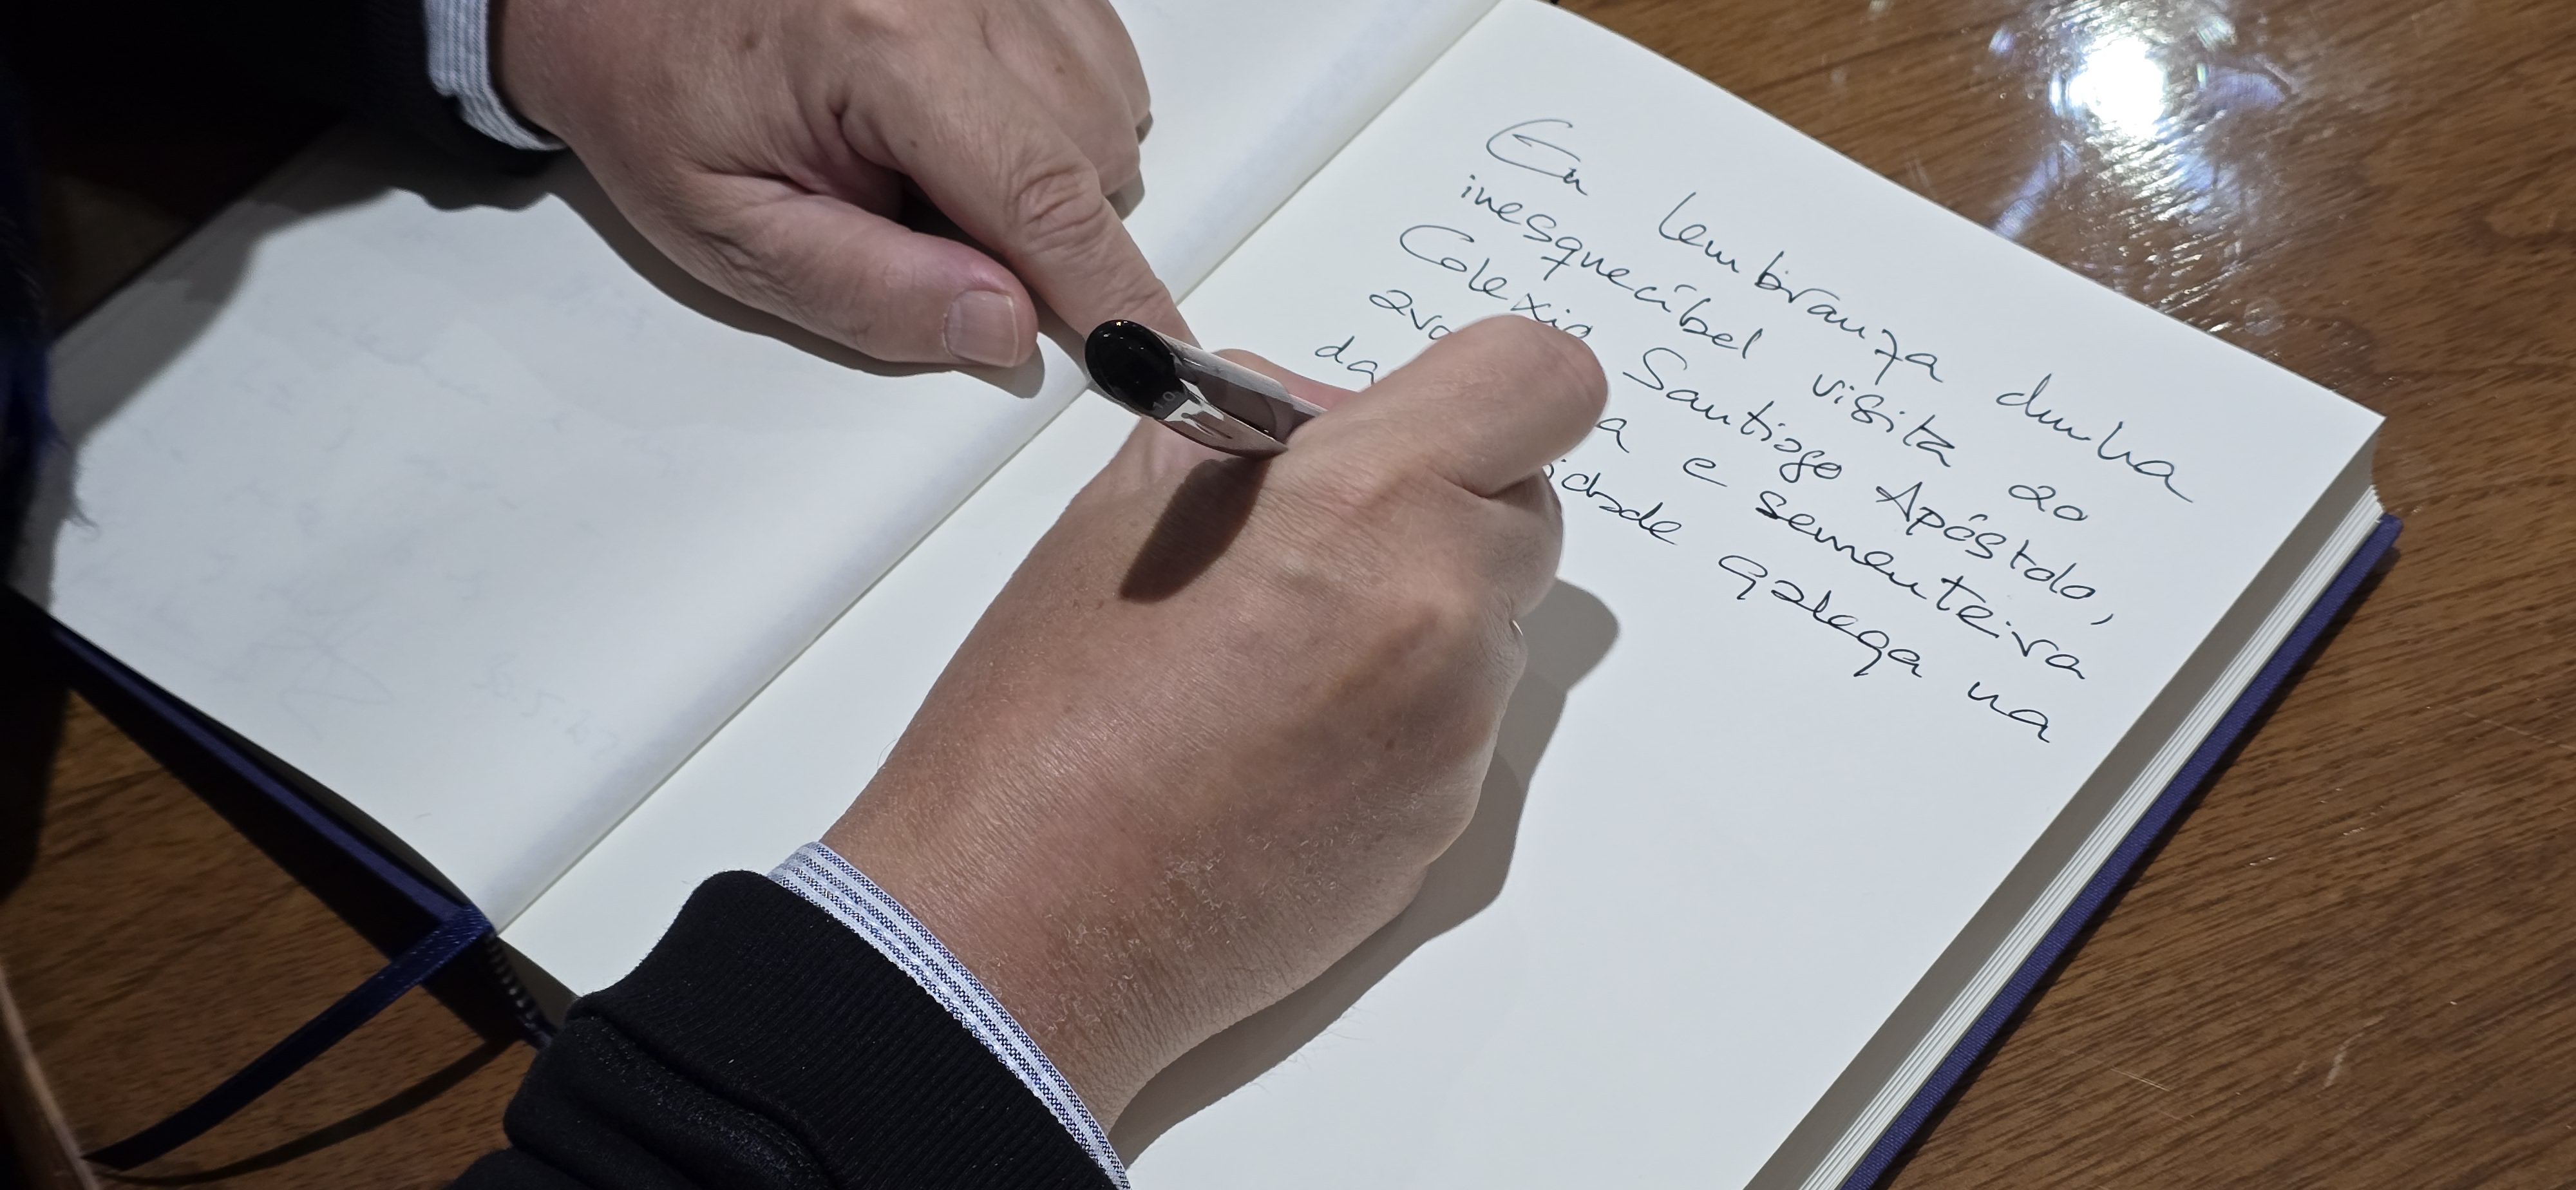 En lembranza dunha
inesquecíbel visita ao
Colexio Santiago Apóstolo,
e sementeira
da galega na